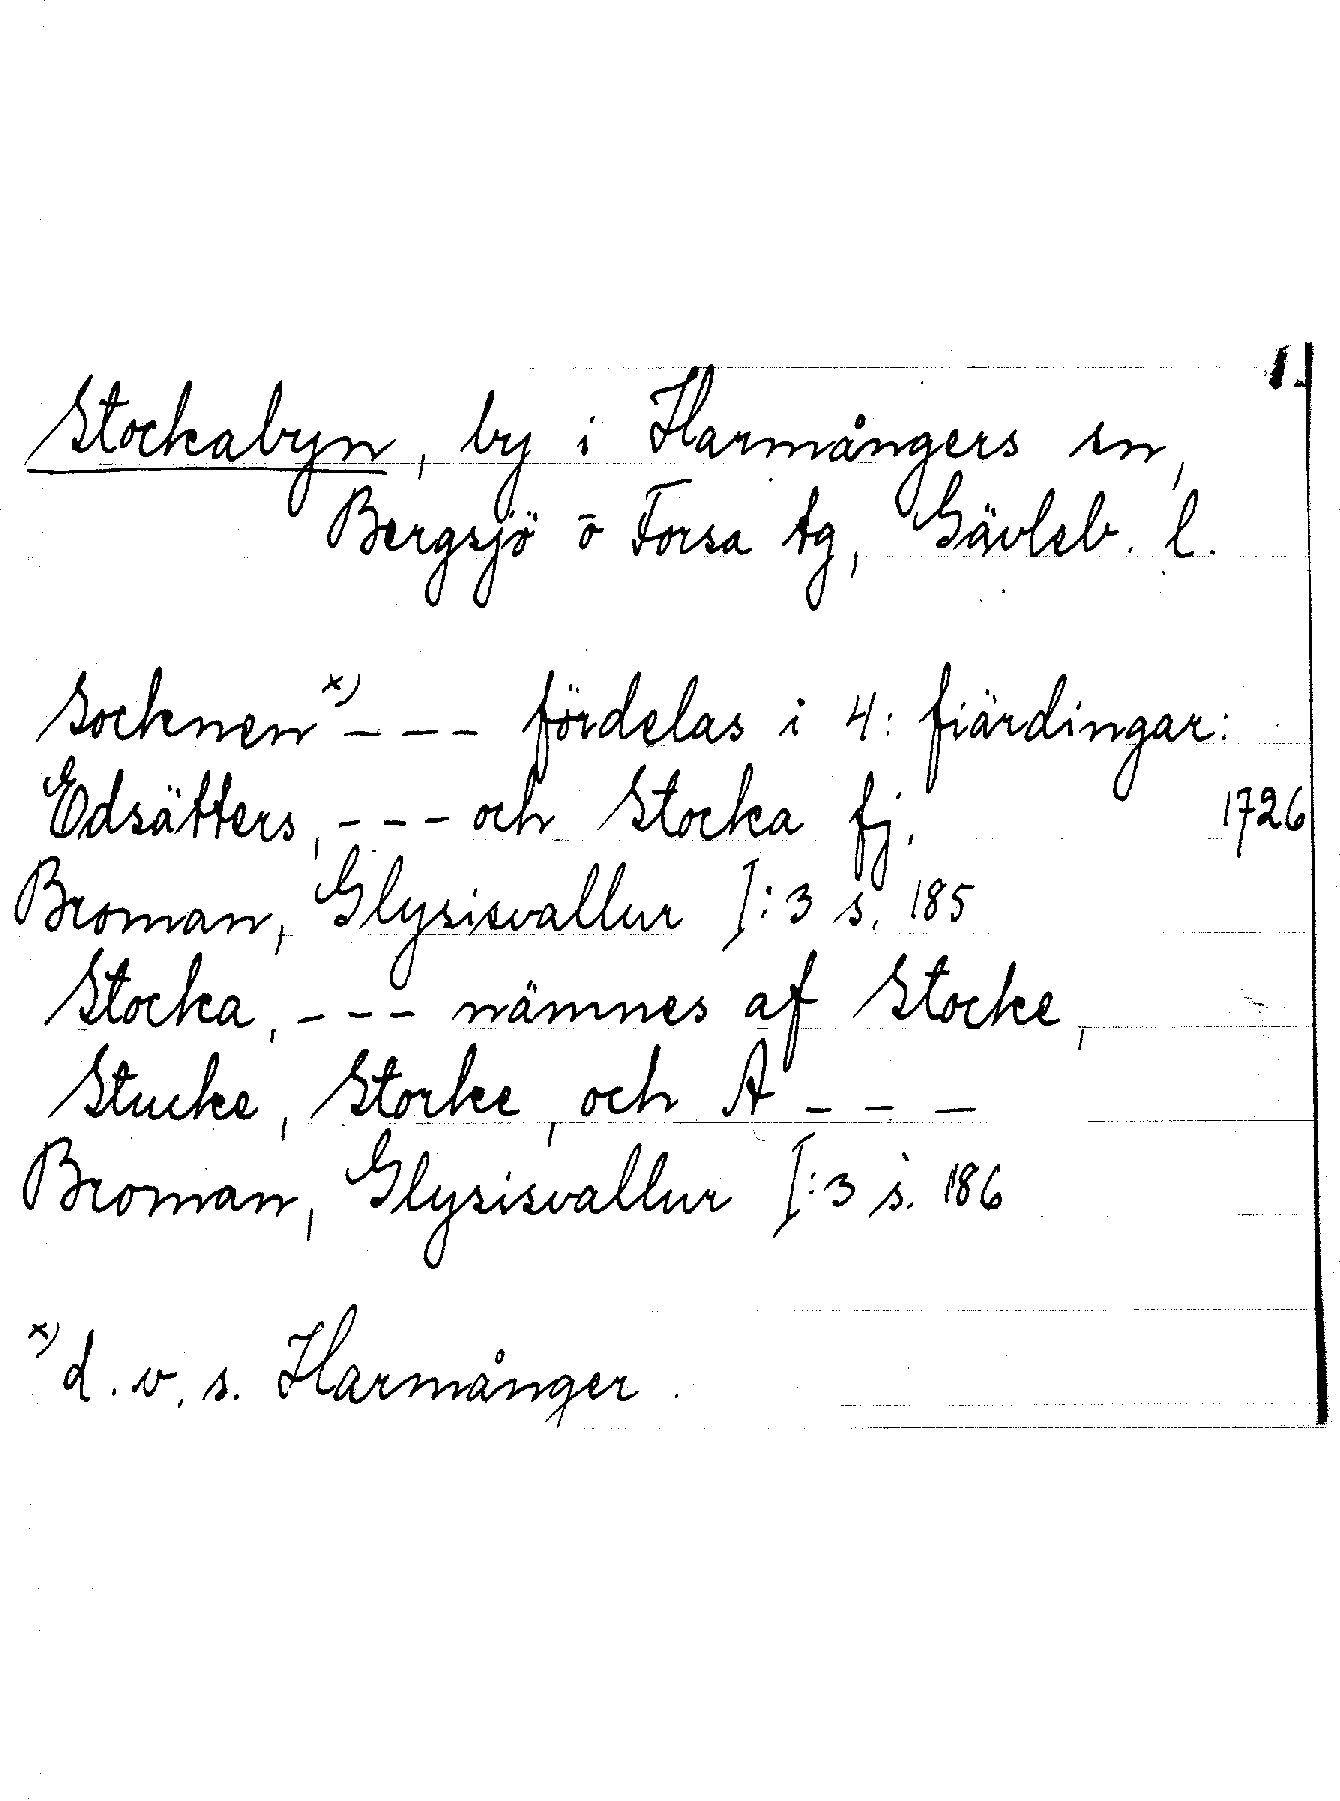 1.
Stockabyn, by i Harmångers sn,
Bergsjö o Forsa tg, Gävleb. l.
Socknen x) - - - fördelas i 4: fiärdingar:
Edsätters, - - - och Stocka fj. 1726
Broman, Glysisvallur I:3 s. 185
Stocka, - - - nämnes af Stocke,
Stucke, Storke, och A - - -
Broman, Glysisvallur I:3 s. 186
x) d. v. s. Harmånger.